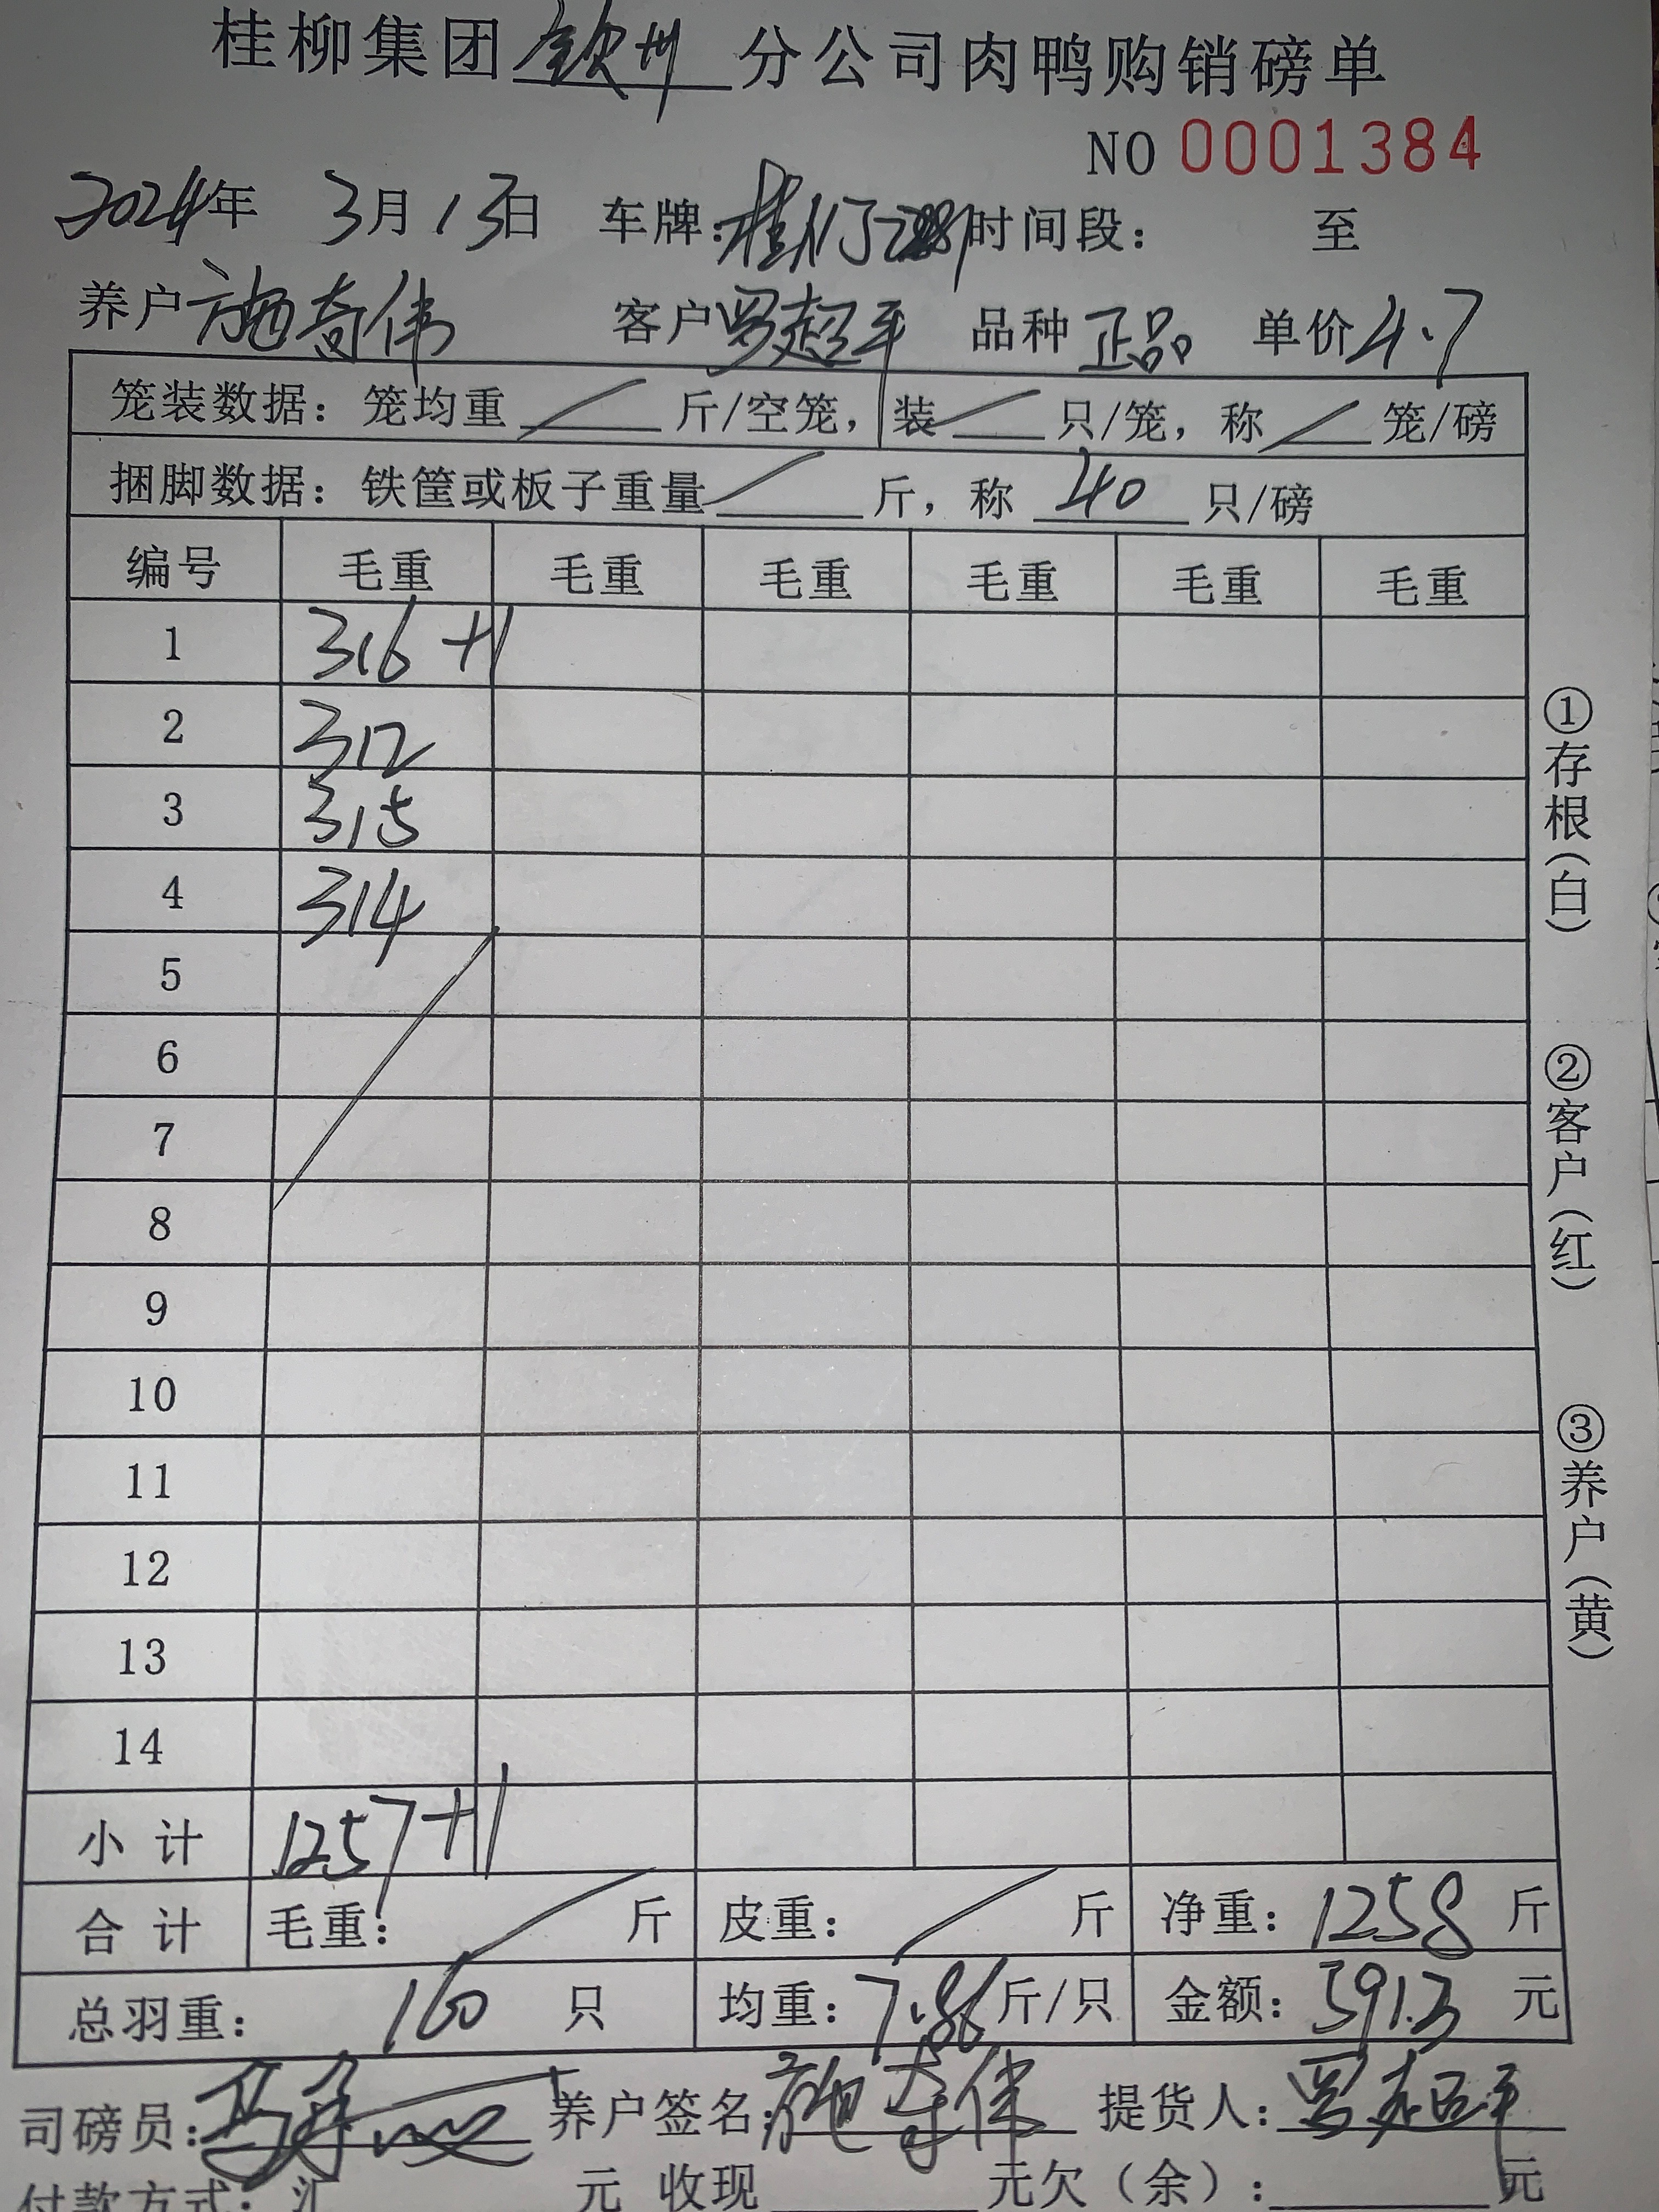 桂柳集团钦州分公司肉鸭购销磅单
NO 0001384
2024年 3月13日 车牌: 时间段: 至
养户施奇伟 客户罗超平 品种正品 单价4.7
笼装数据: 笼均重 斤/空笼, 装 只/笼, 称 笼/磅
捆脚数据: 铁筐或板子重量 斤, 称 40 只/磅
编号 毛重 毛重 毛重 毛重 毛重 毛重
1 316+1
2 312
3 315
4 314
5
6
7
8
9
10
11
12
13
14
小计 1257+1
合计 毛重: 斤 皮重: 斤 净重: 1258 斤
总羽重: 160 只 均重: 7.86斤/只 金额: 5913 元
司磅员: 养户签名: 施奇伟 提货人: 罗超平
付款方式: 汇 元 收现 元欠(余): 元
①存根(白)
②客户(红)
③养户(黄)